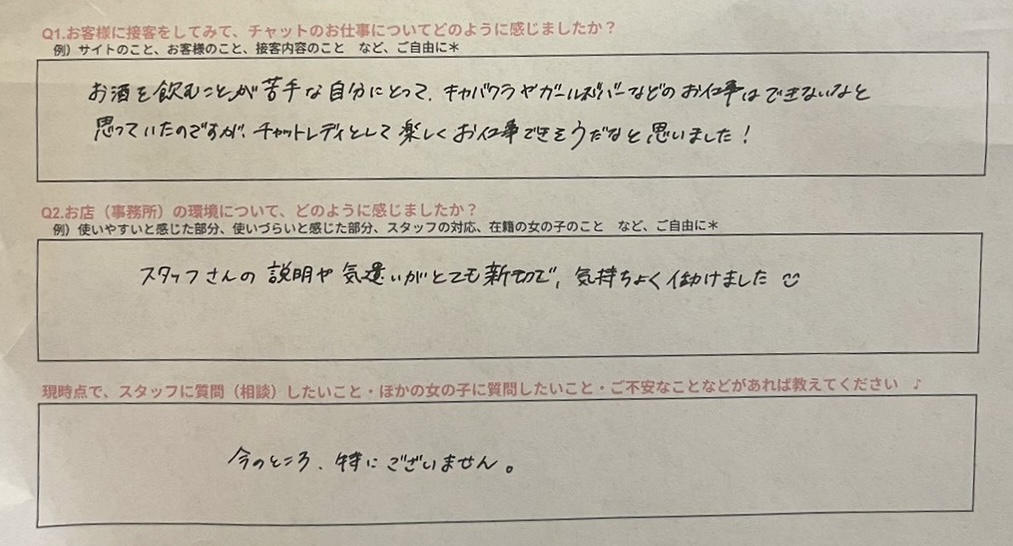 Q1.お客様に接客をしてみて、チャットのお仕事についてどのように感じましたか？
例）サイトのこと、お客様のこと、接客内容のこと　など、ご自由に＊
お酒を飲むことが苦手な自分にとって、キャバクラやガールズバーなどのお仕事はできないなと
思っていたのですが、チャットレディとして楽しくお仕事できそうだなと思いました！
Q2.お店（事務所）の環境について、どのように感じましたか？
例）使いやすいと感じた部分、使いづらいと感じた部分、スタッフの対応、在籍の女の子のこと　など、ご自由に＊
スタッフさんの説明や気遣いがとても親切で、気持ちよく働けました☺
現時点で、スタッフに質問（相談）したいこと・ほかの女の子に質問したいこと・ご不安なことなどがあれば教えてください　♪
今のところ、特にございません。